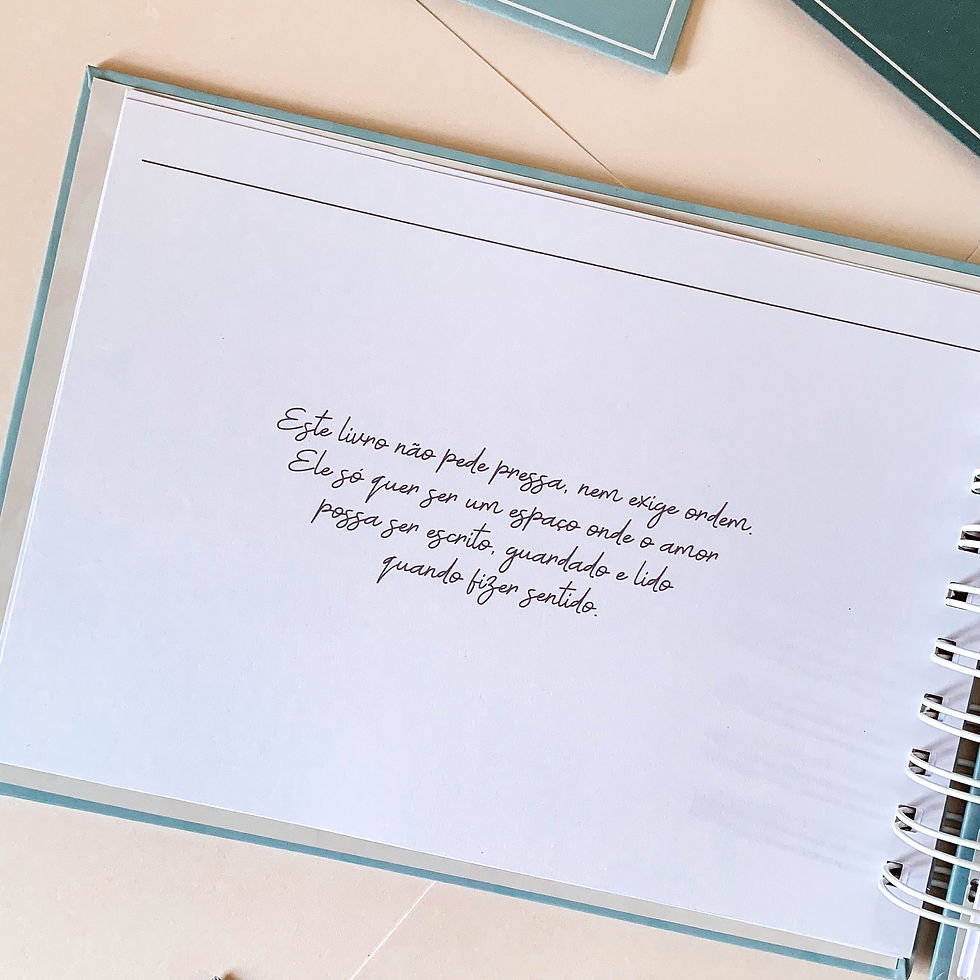 Este livro não pede pressa, nem exige ordem.
Ele só quer ser um espaço onde o amor
possa ser escrito, guardado e lido
quando fizer sentido.